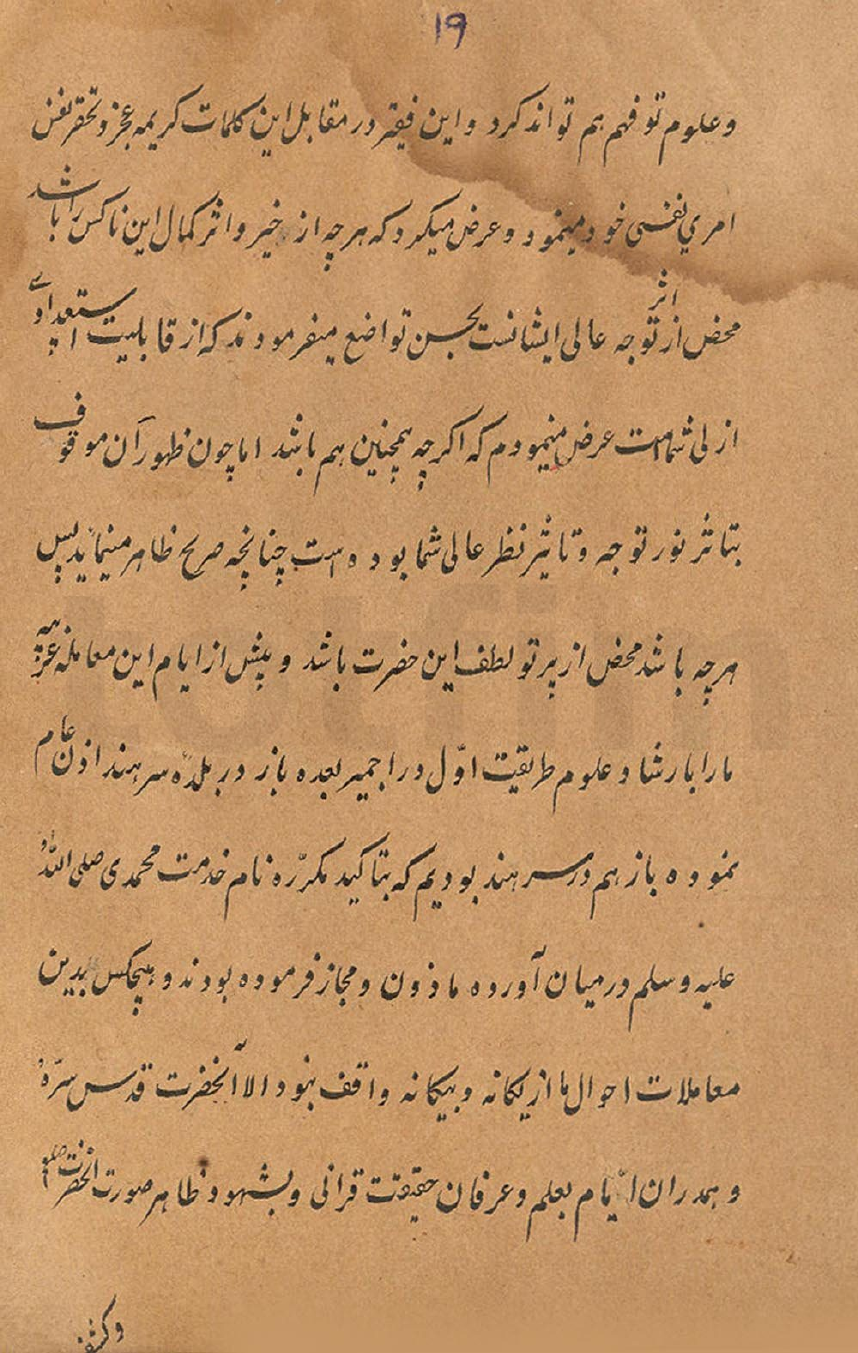 ۱۹
و علوم تو فهم هم تواند کرد و این فقیر در مقابل این کلمات کریمه عجز و تحقر نفس
امری نفسی خود مینمود و عرض میکرد که هرچه از خیر و اثر کمال این ناکس را باشد
محض از اثر توجه عالی ایشانست بحسن تواضع میفرمودند که از قابلیت استعدادے
ازلی شماست عرض مینمودم که اکرچه همچنین هم باشد اما چون ظهور آن موقوف
بتاثر نور توجه و تاثیر نظر عالی شما بوده است چنانچه صریح ظاهر مینماید پس
هرچه باشد محض از پرتو لطف این حضرت باشد و پیش از ایام این معامله عزیمه
مارا بارشاد علوم طریقت اوّل در اجمیر بعده باز در بلده سرهند اذن عام
نموده باز هم در سرهند بودیم که بتاکید مکرّره نام خدمت محمدی صلی الله
علیه وسلم درمیان آورده ماذون و مجاز فرموده بودند و هیچکس بدین
معاملات احوال ما از یکانه و بیکانه واقف نبود الا آنحضرت قدس سرّه
و همدران ایّام بعلم و عرفان حقیقت قرانی و بشهود ظاهر صورت آنحضرت صلعم